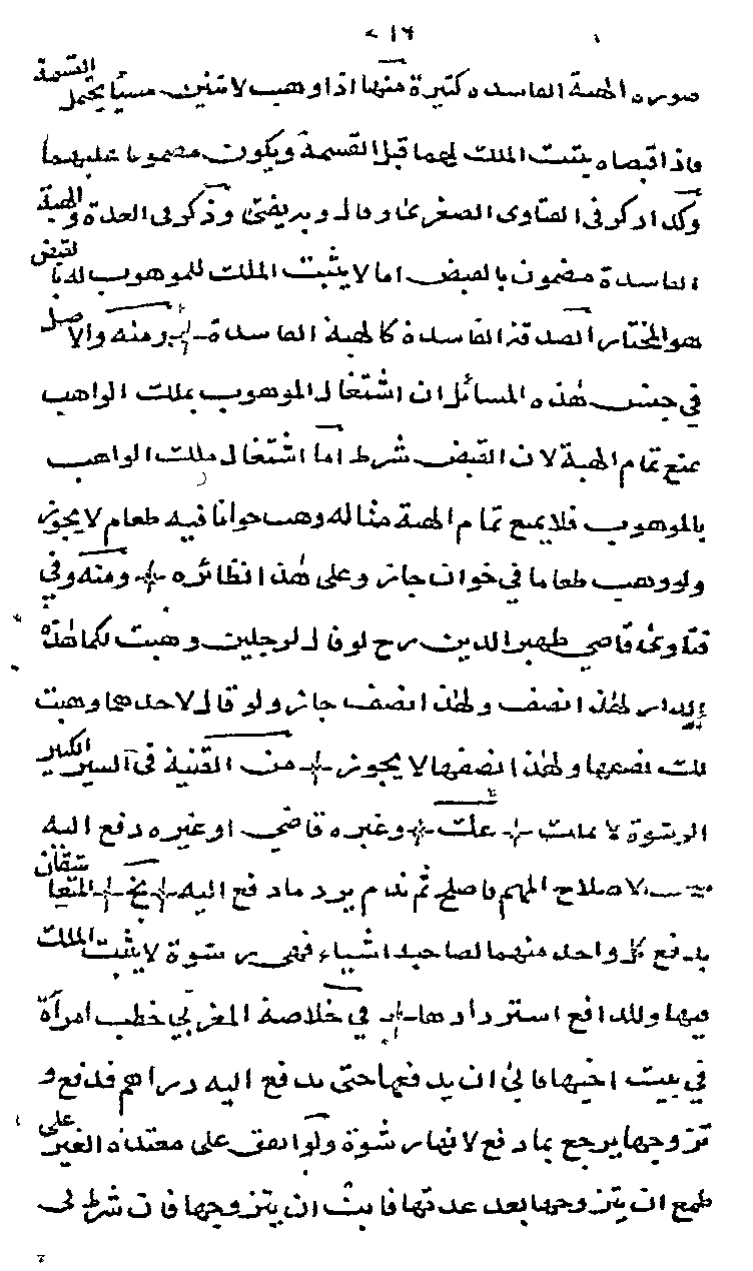 ٢١٦
صوره الهبة الفاسده كثيرة منها اذا وهب لاثنين مشيا يحتمل القسمة
فاذا قبضاه يثبت الملك لهما قبل القسمة ويكون مضمونا عليهما
وكذا ذكر في الفتاوى الصغرى وقال وبه يفتى وذكر في العدة والهبة
الفاسدة مضمون بالقبض اما لا يثبت الملك للموهوب له بالقبض
هو المختار الصدقة الفاسدة كالهبة الفاسدة ومنه والاصل
في جنس هذه المسائل ان اشتغال الموهوب بملك الواهب
يمنع تمام الهبة لان القبض شرط اما اشتغال ملك الواهب
بالموهوب فلا يمنع تمام الهبة مثاله وهب خوانا فيه طعام لا يجوز
ولو وهب طعاما في خوان جاز وعلى هذا نظائره ومنه وفي
فتاوى قاضي ظهير الدين رح لو قال لرجلين وهبت لكما هذه
الدار لهذا نصف ولهذا نصف جاز ولو قال لاحدهما وهبت
لك نصفها ولهذا نصفها لا يجوز من القنية في السير الكبير
الرشوة لا تملك علت وغيره قاضي او غيره دفع اليه
لاصلاح المهم فاصلح ثم ندم يرد ما دفع اليه بخ المتعاشقان
يدفع كل واحد منهما لصاحبه اشياء فهي رشوة لا يثبت الملك
فيها وللدافع استردادها في خلاصة المغربي خطب امرأة
في بيت اخيها فابى ان يدفعها حتى يدفع اليه دراهم فدفع و
تزوجها يرجع بما دفع لانها رشوة ولو انفق على معتدة الغير على
طمع ان يتزوجها بعد عدتها فابت ان يتزوجها فان شرط في